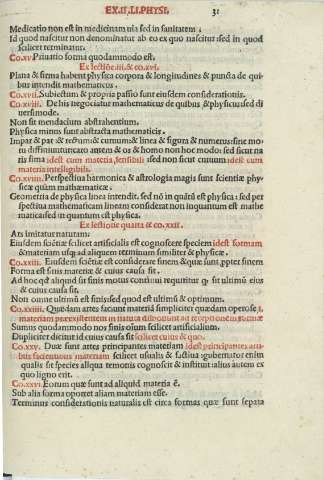 EX.II.LI.PHYSI. 31
Medicatio non est in medicinam uia sed in sanitatem.
Id quod nascitur non denominatur ab eo ex quo nascitur sed in quod
scilicet terminatur.
Co.xv. Priuatio forma quodammodo est.
Ex lectiõe.iii.& co.xvi.
Plana & firma habent physica corpora & longitudines & puncta de qui
bus intendit mathematicus.
Co.xvii. Subiectum & propria passio sunt eiusdem considerationis.
Co.xviii. De his negociatur mathematicus de quibus & physicus sed di
uersimode.
Non sit mendacium abstrahentium.
Physica minus sunt abstracta mathematicis.
Impar & par & rectum & curuum & linea & figura & numerus sine mo
tu diffiniuntur caro autem & os & homo non hoc modo: sed sicut na
ris sima idest cum materia sensibili sed non sicut curuum idest cum
materia intelligibili.
Co.xviiii. Perspectiua harmonica & astrologia magis sunt scientiæ phy
sicæ quàm mathæmaticæ.
Geometra de physica linea intendit. sed nõ in quãtũ est physica: sed per
spectiua mathematicam lineam considerat non inquantum est mathe
matica sed in quantum est physica.
Ex lectione quarta & co.xxii.
Ars imitatur naturam:
Eiusdem sciẽtiæ scilicet artificialis est cognoscere speciem idest formam
& materiam usq; ad aliquem terminum similiter & physicæ.
Co.xxiii. Eiusdem sciẽtiæ est considerare finem & quæ sunt ppter finem
Forma est finis materiæ & cuius causa sit.
Ad hoc qđ aliquid sit finis motus continui requiritur q; sit ultimũ eius
& cuius causa sit.
Non omne ultimũ est finis: sed quod est ultimũ & optimum.
Co.xxiiii. Quædam artes faciunt materia simpliciter quædam operose
materiam præexistentem in natura disponunt ad receptionem formæ
Sumus quodammodo nos finis oĩum scilicet artificialium.
Dupliciter dicitur id cuius causa sit scilicet cuius & quo.
Co.xxv. Duæ sunt artes principantes materiam idest principantes arti
bus facientibus materiam scilicet usualis & factiua: gubernator enim
qualis sit species aliqua temonis cognoscit & instituit: alius autem ex
quo ligno erit.
Co.xxvi. Eorum quæ sunt ad aliquid materia ẽ.
Sub alia forma oportet aliam materiam esse.
Terminus considerationis naturalis est circa formas quæ sunt sepata